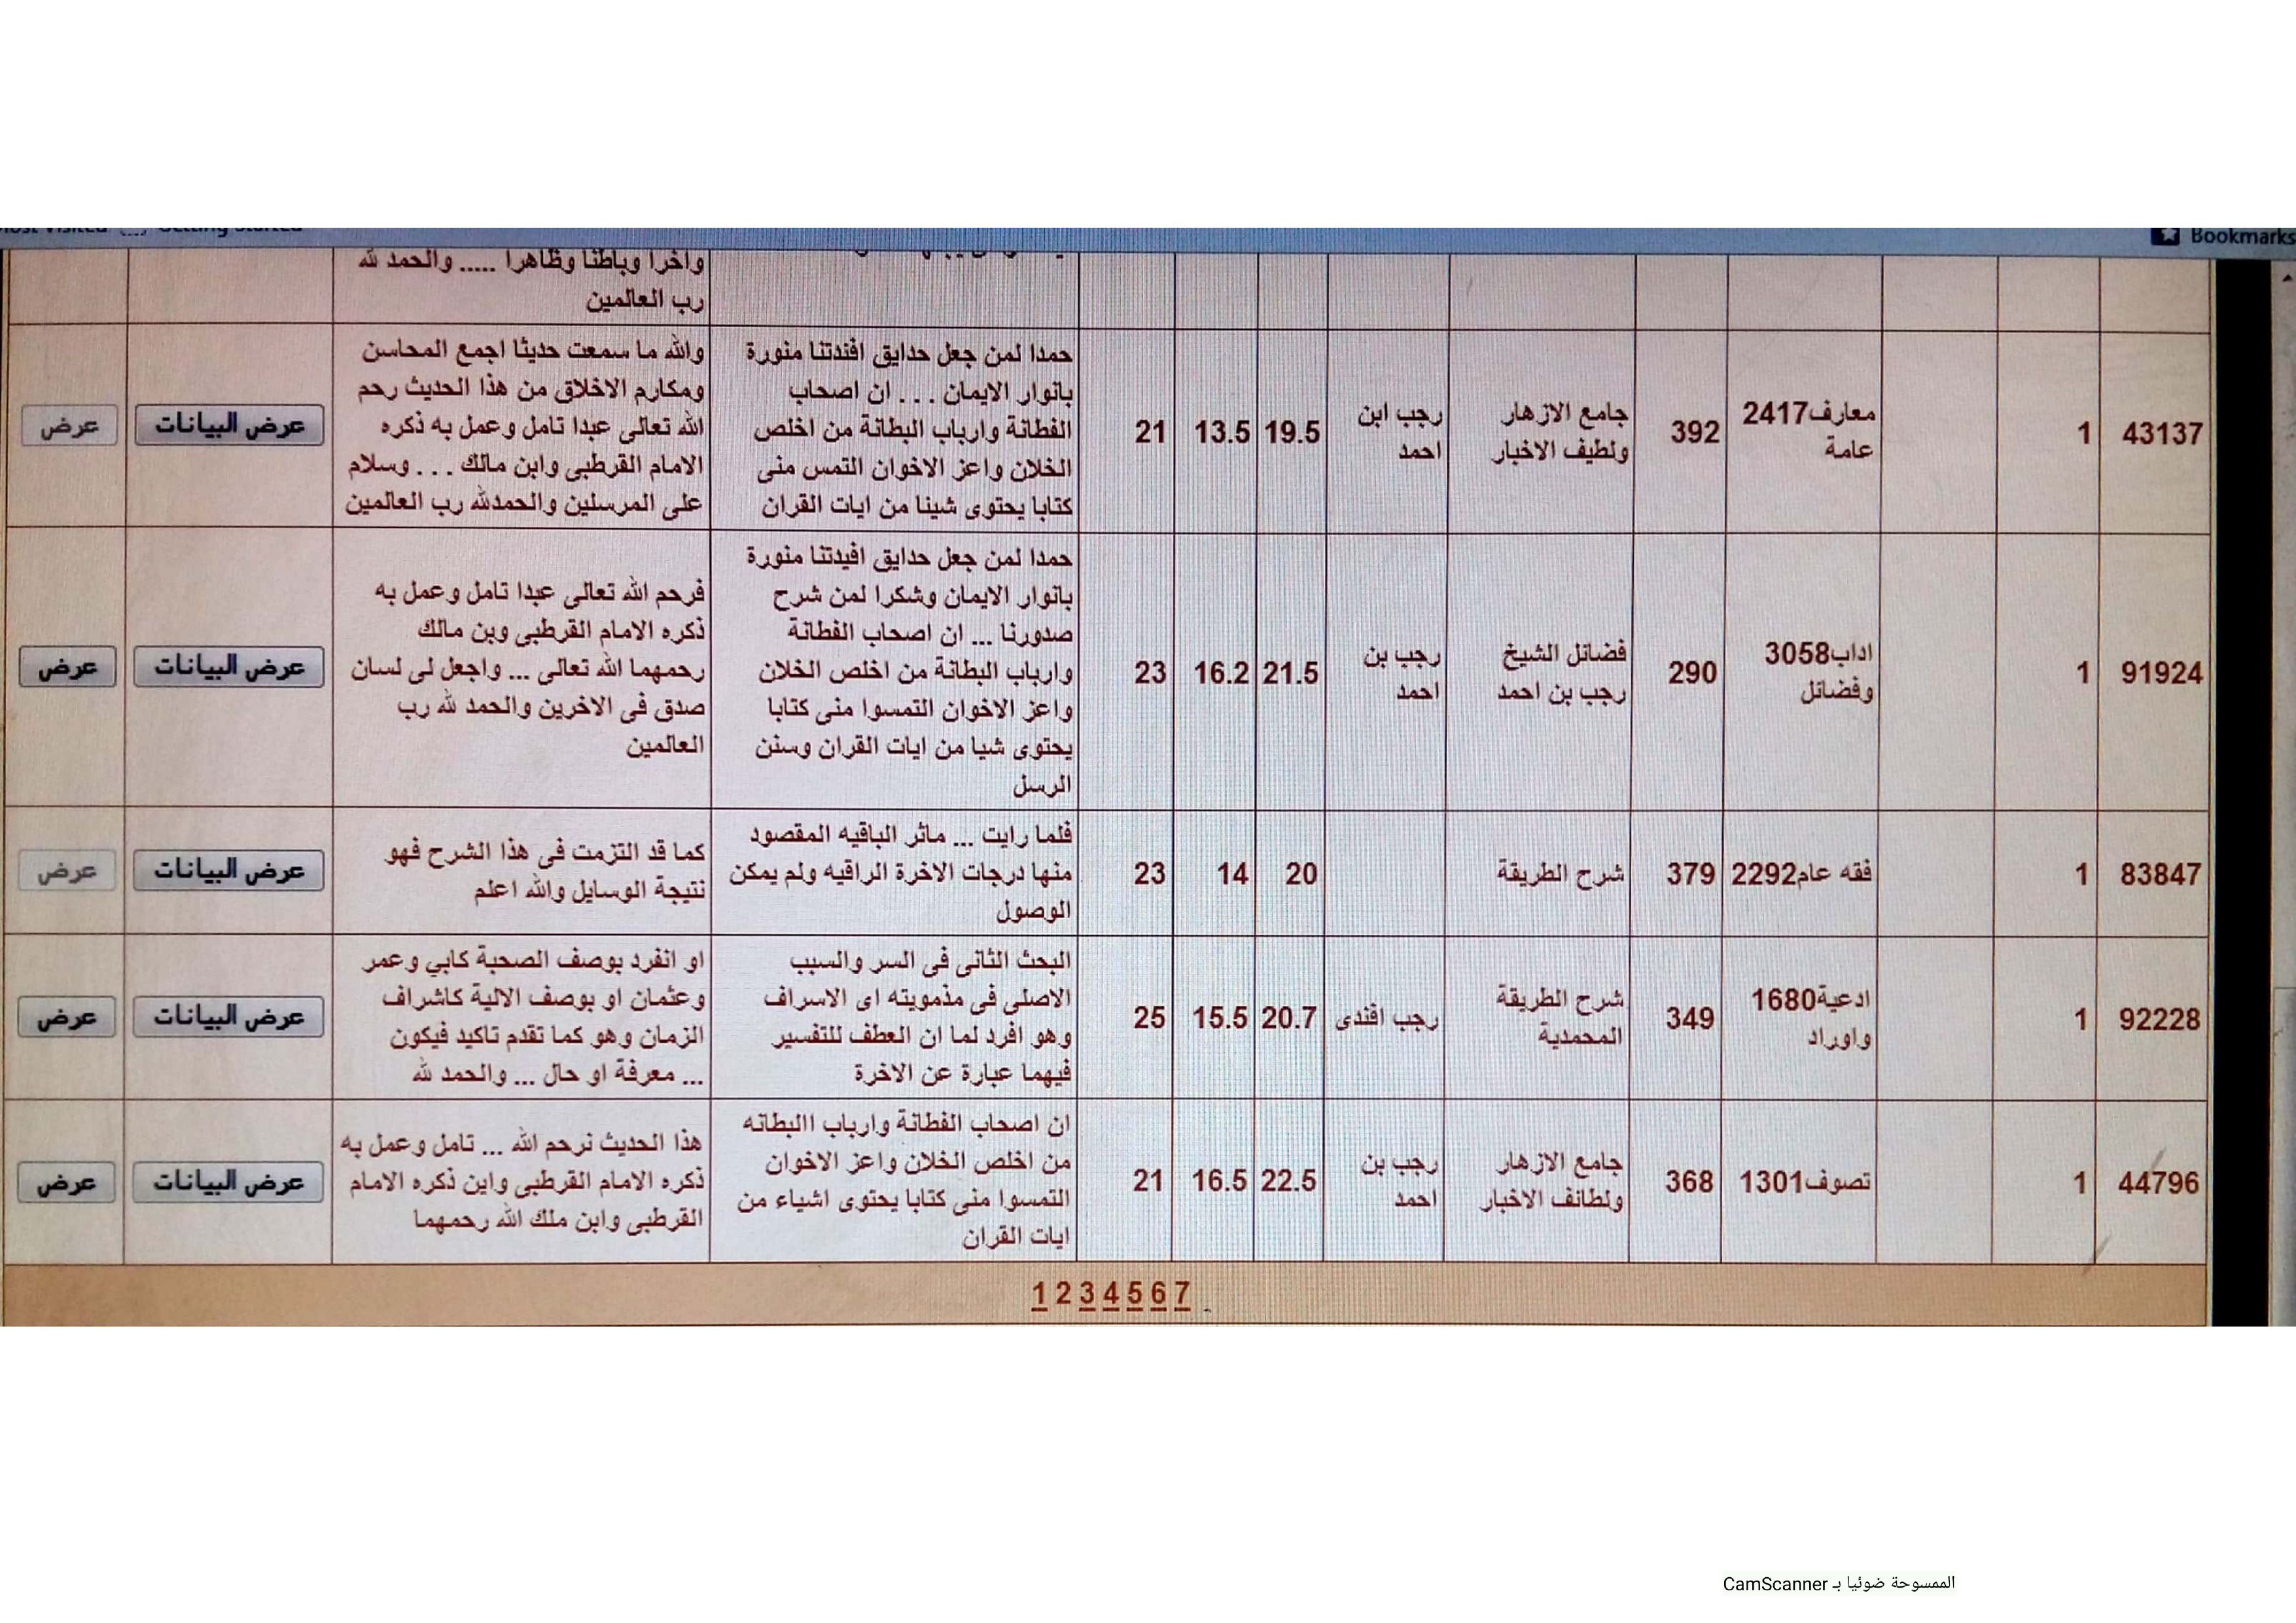 Bookmarks
واخرا وباطنا وظاهرا ..... والحمد لله
رب العالمين
43137
1
معارف2417
عامة
392
جامع الازهار
ولطيف الاخبار
رجب ابن
احمد
19.5
13.5
21
حمدا لمن جعل حدايق افئدتنا منورة
بانوار الايمان . . . ان اصحاب
الفطانة وارباب البطانة من اخلص
الخلان واعز الاخوان التمس منى
كتابا يحتوى شيئا من ايات القران
والله ما سمعت حديثا اجمع المحاسن
ومكارم الاخلاق من هذا الحديث رحم
الله تعالى عبدا تامل وعمل به ذكره
الامام القرطبى وابن مالك . . . وسلام
على المرسلين والحمدلله رب العالمين
عرض البيانات
عرض
91924
1
اداب3058
وفضائل
290
فضائل الشيخ
رجب بن احمد
رجب بن
احمد
21.5
16.2
23
حمدا لمن جعل حدايق افيدتنا منورة
بانوار الايمان وشكرا لمن شرح
صدورنا ... ان اصحاب الفطانة
وارباب البطانة من اخلص الخلان
واعز الاخوان التمسوا منى كتابا
يحتوى شيا من ايات القران وسنن
الرسل
فرحم الله تعالى عبدا تامل وعمل به
ذكره الامام القرطبى وبن مالك
رحمهما الله تعالى ... واجعل لى لسان
صدق فى الاخرين والحمد لله رب
العالمين
عرض البيانات
عرض
83847
1
فقه عام2292
379
شرح الطريقة
20
14
23
فلما رايت ... ماثر الباقيه المقصود
منها درجات الاخرة الراقيه ولم يمكن
الوصول
كما قد التزمت فى هذا الشرح فهو
نتيجة الوسايل والله اعلم
عرض البيانات
عرض
92228
1
ادعية1680
واوراد
349
شرح الطريقة
المحمدية
رجب افندى
20.7
15.5
25
البحث الثانى فى السر والسبب
الاصلى فى مذمويته اى الاسراف
وهو افرد لما ان العطف للتفسير
فيهما عبارة عن الاخرة
او انفرد بوصف الصحبة كابي وعمر
وعثمان او بوصف الالية كاشراف
الزمان وهو كما تقدم تاكيد فيكون
... معرفة او حال ... والحمد لله
عرض البيانات
عرض
44796
1
تصوف1301
368
جامع الازهار
ولطائف الاخبار
رجب بن
احمد
22.5
16.5
21
ان اصحاب الفطانة وارباب االبطانه
من اخلص الخلان واعز الاخوان
التمسوا منى كتابا يحتوى اشياء من
ايات القران
هذا الحديث نرحم الله ... تامل وعمل به
ذكره الامام القرطبى واين ذكره الامام
القرطبى وابن ملك الله رحمهما
عرض البيانات
عرض
1 2 3 4 5 6 7
الممسوحة ضوئيا بـ CamScanner